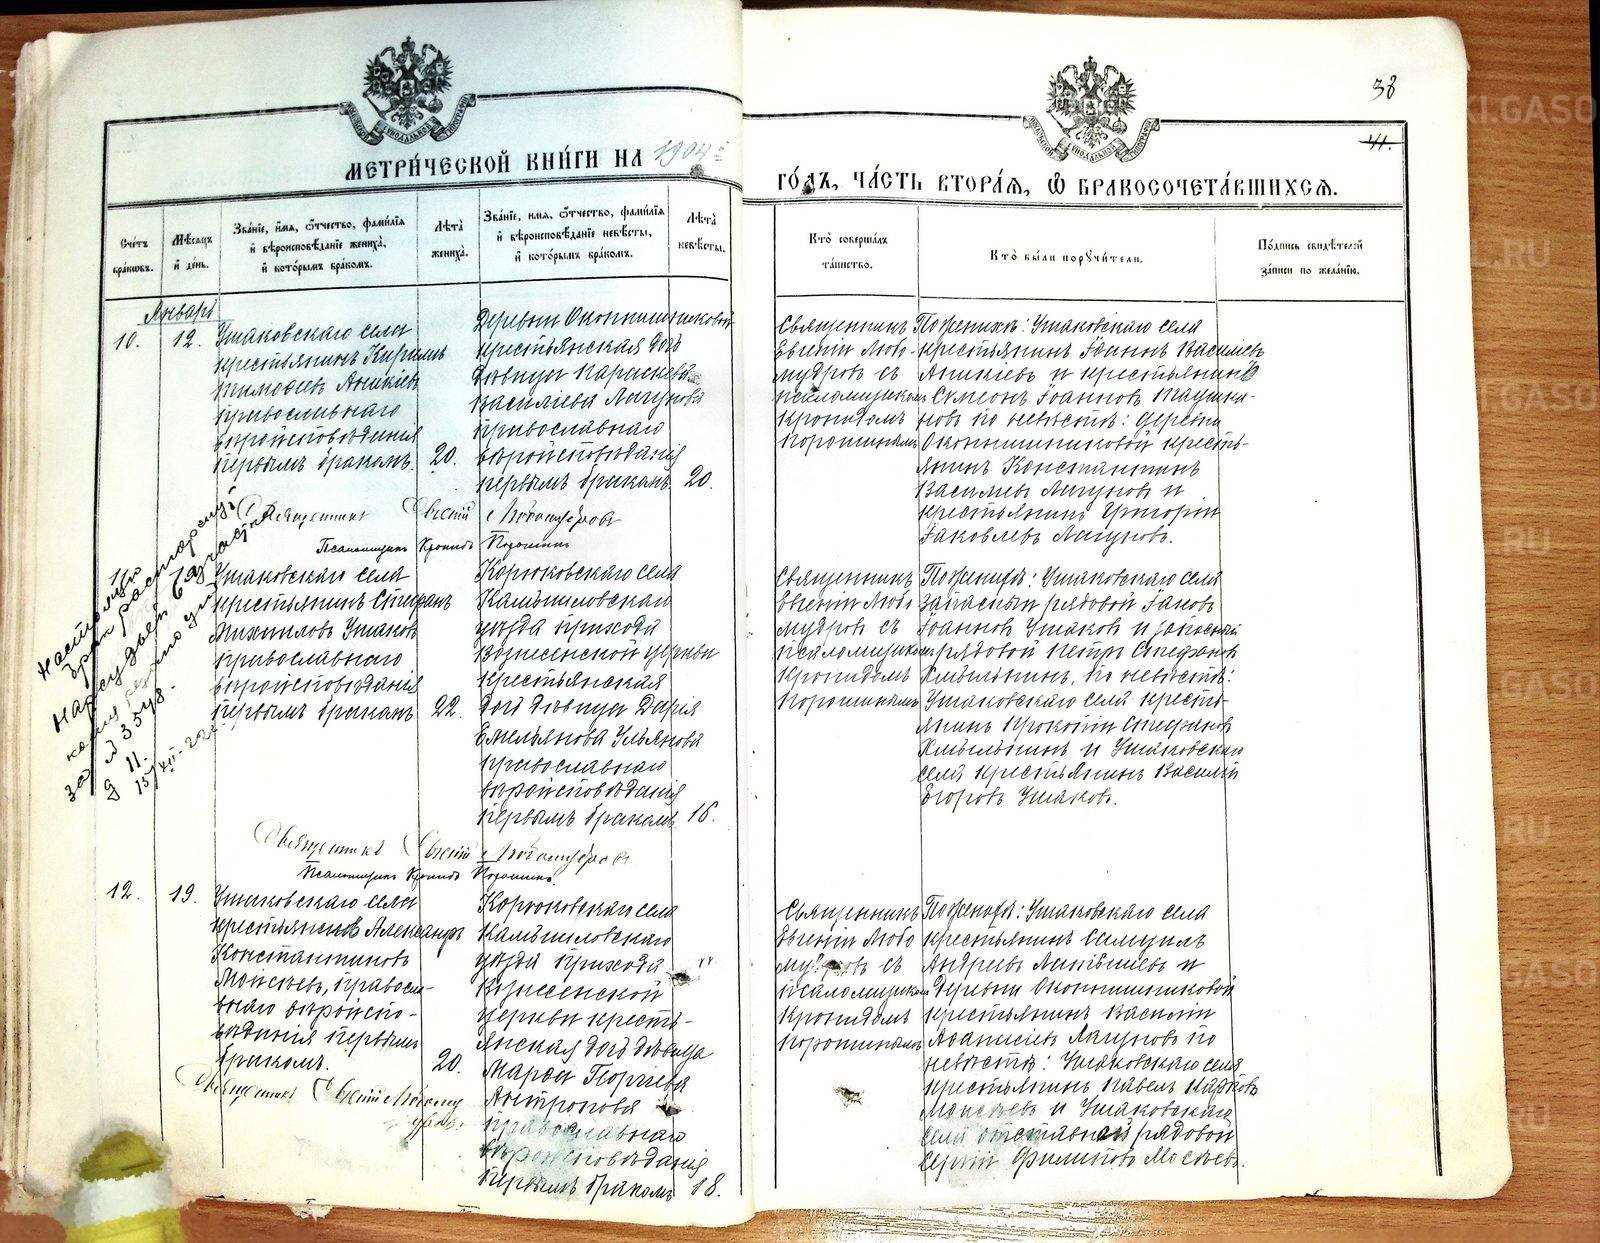 38
41.
МЕТРИ́ЧЕСКОЙ КНИ́ГИ НА 1904 й
ГО́ДЪ, ЧА́СТЬ ВТОРА́Я, Ѿ БРАКОСОЧЕТА́ВШИХСЯ.
Сче́тъ бра́ковъ.
Мѣ́сяцъ и́ де́нь.
Зва́нїе, и́мя, ѻ҆́тчество, фами́лїя и҆ вѣроисповѣ́данїе жениха̀, и҆ кото́рымъ бра́комъ.
Лѣ́та жениха̀.
Зва́нїе, и҆мя, ѻ҆́тчество, фами́лїя и҆ вѣроисповѣ́данїе невѣ́сты, и҆ кото́рымъ бра́комъ.
Лѣ́та невѣ́сты.
Кто̀ соверша́лъ та́инство.
Кто̀ бы́ли поручи́тели.
По́дпись свидѣ́телей за́писи по жела́нїю.
Январь
10.
12.
Ушаковскаго села
крестьянинъ Кириллъ
Тимоѳеевъ Аникіевъ
православнаго
вѣроисповѣданія
первымъ бракомъ.
20.
Деревни Оконишниковой
крестьянская дочь
дѣвица Параскева
Васильева Лагунова
православнаго
вѣроисповѣданія
первымъ бракомъ.
20.
Священникъ
Евгеній Любо-
мудровъ съ
псаломщикомъ
Кронидомъ
Порошинымъ
По женихѣ: Ушаковскаго села
крестьянинъ Іоаннъ Василіевъ
Аникіевъ и крестьянинъ
Симеонъ Іоанновъ
новъ по невѣстѣ: деревни
Оконишниковой кресть-
янинъ Константинъ
Васильевъ Лагуновъ и
крестьянинъ Григорій
Іаковлевъ Лагуновъ.
Священникъ Евгеній Любомудровъ
Псаломщикъ Кронидъ Порошинъ
11.
Настоящій
бракъ расторгнутъ
Нарсудьей 6 участка
за № 3548.
15/XII-22 г.
Ушаковскаго села
крестьянинъ Стефанъ
Михаиловъ Ушаковъ
православнаго
вѣроисповѣданія
первымъ бракомъ
22.
Корюковскаго села
Камышловскаго
уѣзда прихода
Вознесенской церкви
крестьянская
дочь дѣвица Дарія
Емельянова Ульянова
православнаго
вѣроисповѣданія
первымъ бракомъ.
16.
Священникъ
Евгеній Любо
мудровъ съ
псаломщикомъ
Кронидомъ
Порошинымъ
По женихѣ: Ушаковскаго села
запасный рядовой Іаковъ
Іоанновъ Ушаковъ и запасный
рядовой Петръ Стефановъ
Хмѣльнинъ, по невѣстѣ:
Ушаковскаго села кресть-
янинъ Прокопій Стефановъ
Хмѣльнинъ и Ушаковскаго
села крестьянинъ Василій
Егоровъ Ушаковъ.
Священникъ Евгеній Любомудровъ
Псаломщикъ Кронидъ Порошинъ.
12.
19.
Ушаковскаго села
крестьянинъ Александръ
Константиновъ
Моисѣевъ, правосла-
внаго вѣроиспо-
вѣданія первымъ
бракомъ.
20.
Корюковскаго села
Камышловскаго
уѣзда прихода
Вознесенской
церкви кресть-
янская дочь дѣвица
Марѳа Георгіева
Антропова
православнаго
вѣроисповѣданія
первымъ бракомъ
18.
Священникъ
Евгеній Любо
мудровъ съ
псаломщикомъ
Кронидомъ
Порошинымъ
По женихѣ: Ушаковскаго села
крестьянинъ Самуилъ
Андреевъ и
деревни Оконишниковой
крестьянинъ Василій
Аѳанасіевъ Лагуновъ по
невѣстѣ: Ушаковскаго села
крестьянинъ Павелъ
Моисѣевъ и Ушаковскаго
села отставной рядовой
Сергій Филиповъ Моисѣевъ.
Священникъ Евгеній Любому
дровъ.